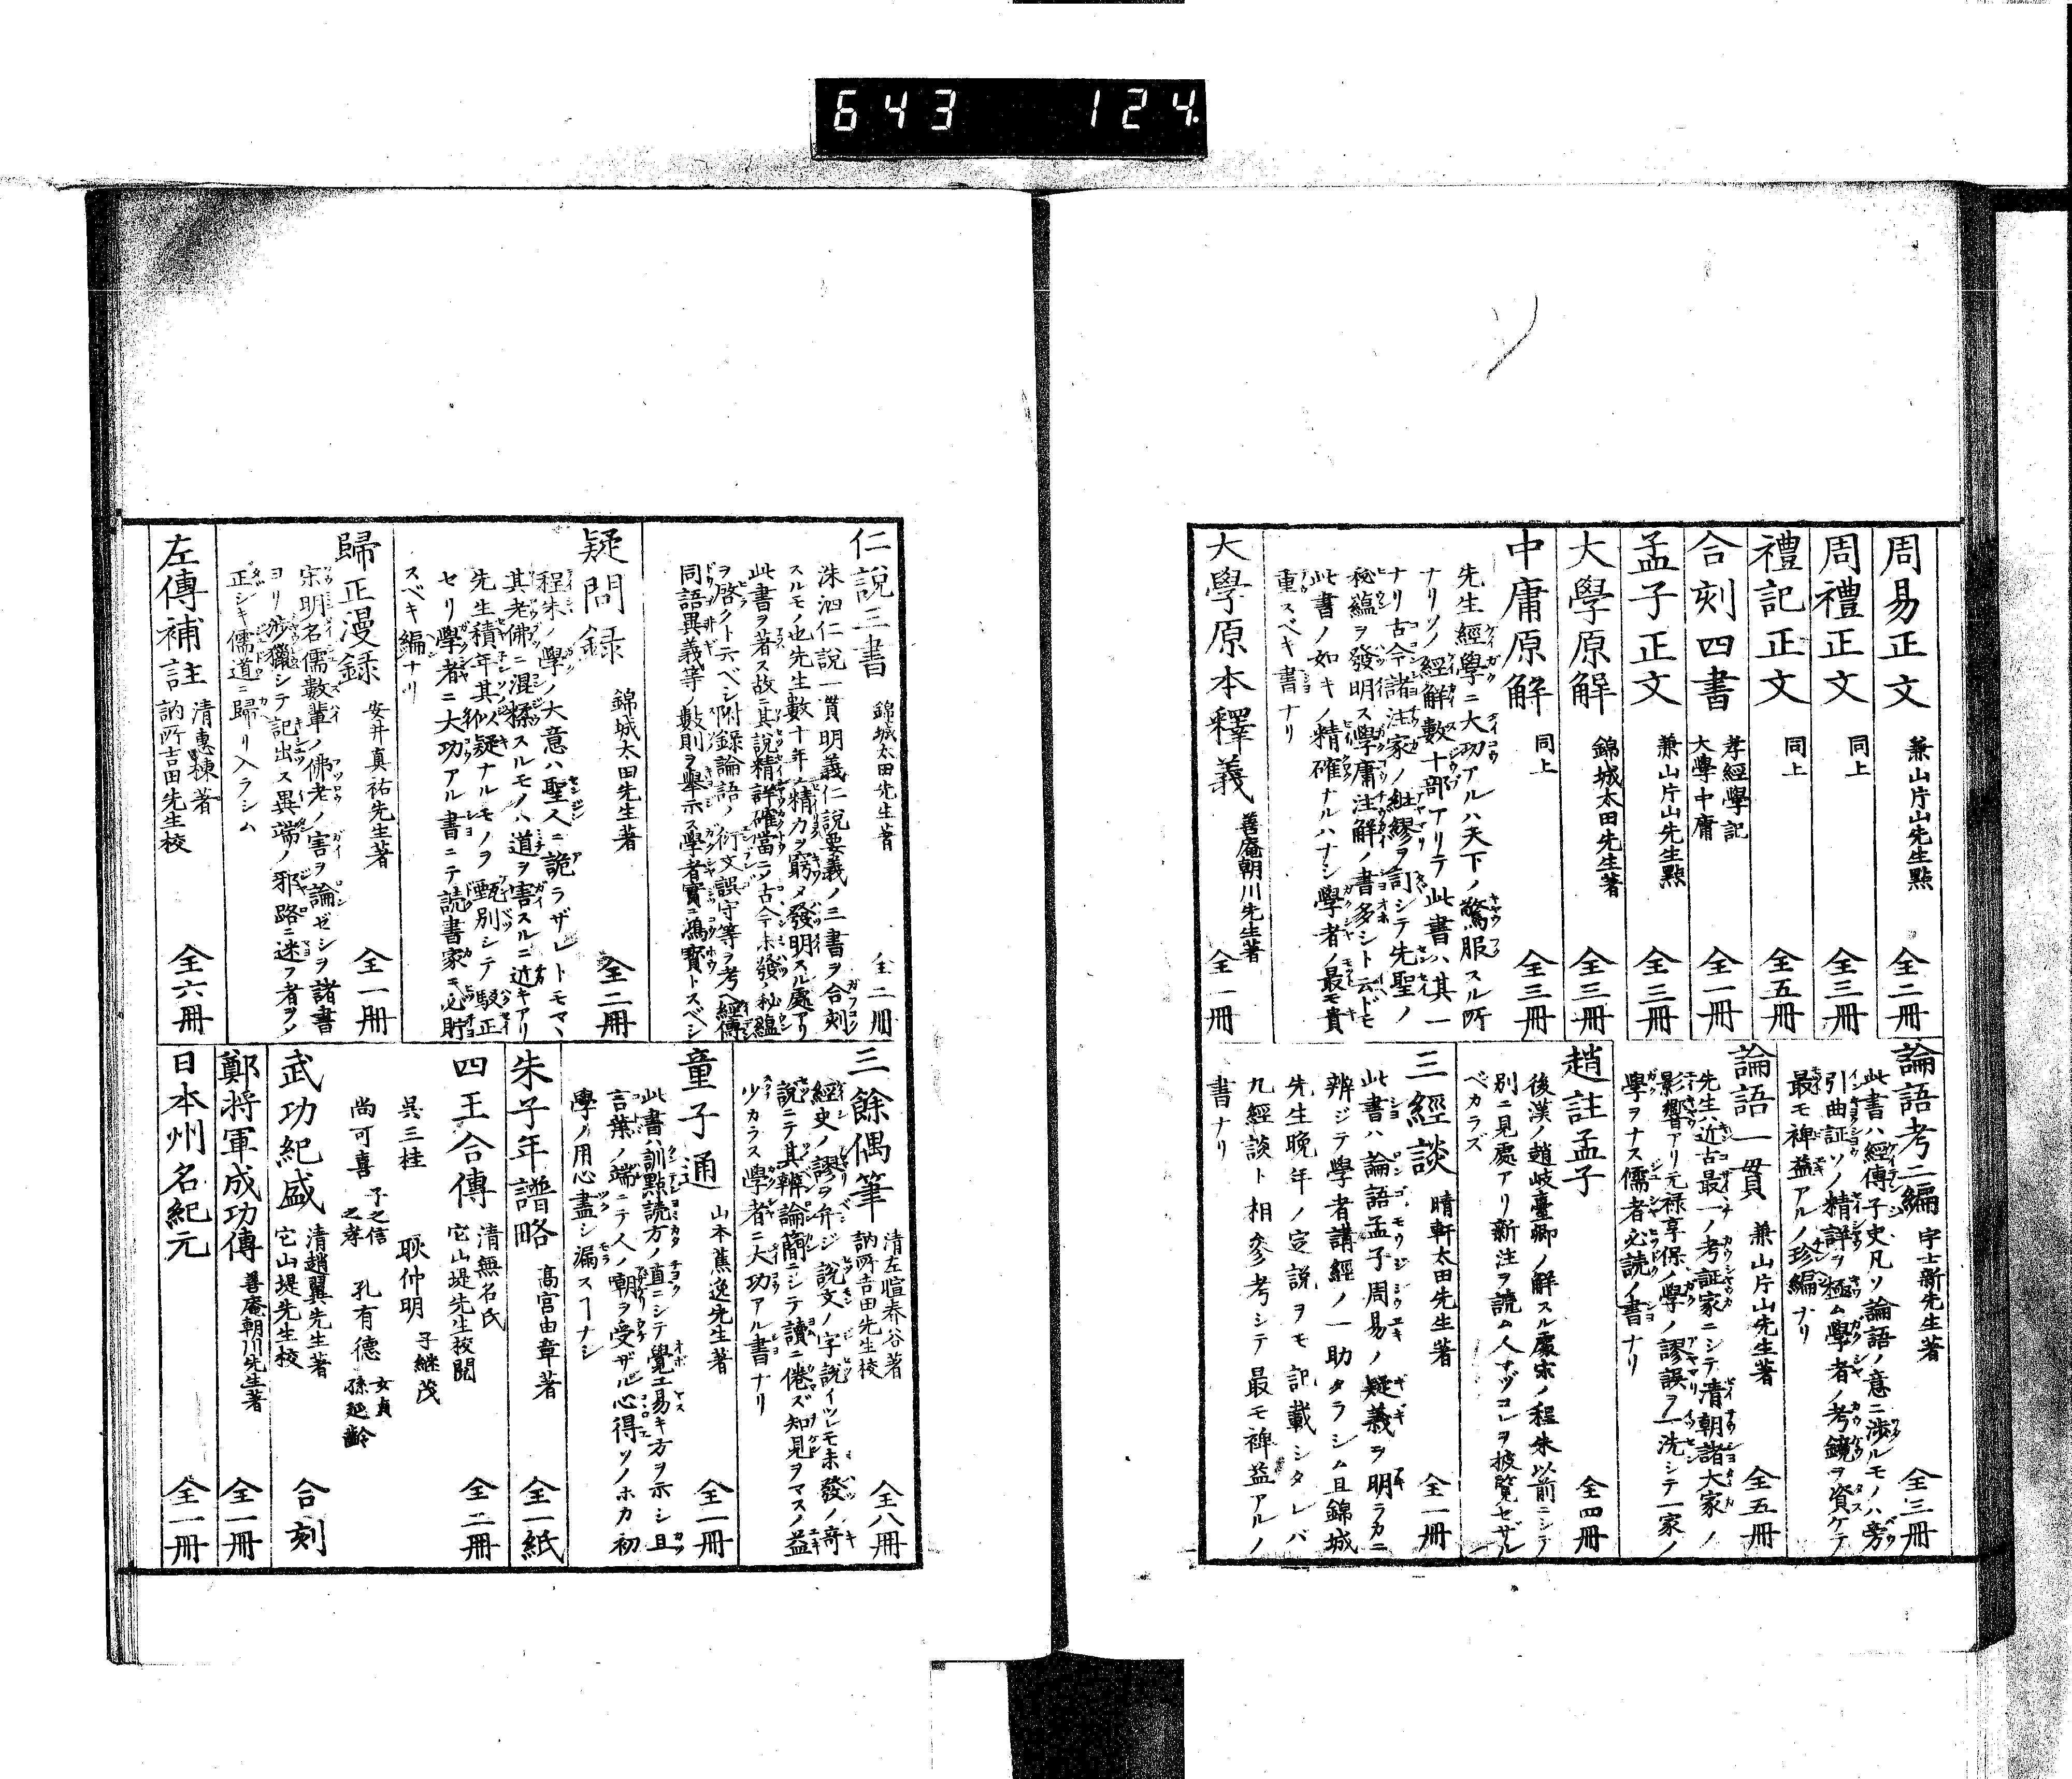 643 124
周易正文 兼山片山先生點 全二冊
周禮正文 同上 全三冊
禮記正文 同上 全五冊
合刻四書 孝經學記 大學中庸 全一冊
孟子正文 兼山片山先生點 全三冊
大學原解 錦城太田先生著 全三冊
中庸原解 同上 全三冊
先生經學ニ大功アルハ天下ノ驚服スル所
ナリソノ經解數十部アリテ此書ハ其一
ナリ古今諸注家ノ紕繆ヲ訂シテ先聖ノ
秘蘊ヲ發明ス學庸注解ノ書多シト云ドモ
此書ノ如キノ精確ナルハナシ學者ノ最モ貴
重スベキ書ナリ
大學原本釋義 善庵朝川先生著 全一冊
論語考二編 宇士新先生著 全三冊
此書ハ經傳子史凡ソ論語ノ意ニ渉ルモノハ旁
引曲証ソノ精詳ヲ極ム學者ノ考鏡ヲ資ケテ
最モ裨益アルノ珍編ナリ
論語一貫 兼山片山先生著 全五冊
先生ハ近古最一ノ考証家ニシテ清朝諸大家ノ
影響アリ元禄享保ノ學ノ謬誤ヲ一洗シテ一家ノ
學ヲナス儒者必読ノ書ナリ
趙註孟子 全四冊
後漢ノ趙岐臺卿ノ解スル處宋ノ程朱以前ニシテ
別ニ見處アリ新注ヲ読ム人ナヅコレヲ披覽セザル
ベカラズ
三經談 晴軒太田先生著 全一冊
此書ハ論語孟子周易ノ疑義ヲ明ラカニ
辨ジテ學者講經ノ一助タラシム且錦城
先生晚年ノ定説ヲモ記載シタレバ
九經談ト相參考シテ最モ裨益アルノ
書ナリ
仁說三書 錦城太田先生著 全二冊
洙泗仁說一貫明義仁說要義ノ三書ヲ合刻
スルモノ也先生數十年ノ精力ヲ窮メ發明スル處アリ
此書ヲ著ス故ニ其說精詳確當ニソ古今未發ノ秘蘊
ヲ啓クト云ベシ附錄論語ノ衍文誤字等ヲ考ヘ經傳
同語異義等ノ數則ヲ舉示ス學者實ニ鴻寶トスベシ
疑問録 錦城太田先生著 全二冊
程朱ノ學ノ大意ハ聖人ニ詭ラザレトモマヽ
其老佛ニ混揉スルモノハ道ヲ害スルニ近キアリ
先生積年其似疑ナルモノヲ甄別シテ駁正
セリ學者ニ大功アル書ニテ読書家モ必貯
スベキ編ナリ
歸正漫録 安井真祐先生著 全一冊
宋明名儒數輩ノ佛老ノ害ヲ論ゼシヲ諸書
ヨリ渉獵シテ記出ス異端ノ邪路ニ迷フ者ヲソ
正シキ儒道ニ歸リ入ラシム
左傳補註 清惠棟著 訥所吉田先生校 全六冊
三餘偶筆 清左暄春谷著 訥所吉田先生校 全八冊
經史ノ謬ヲ弁ジ說文ノ字說イツレモ未發ノ奇
說ニテ其辨論簡ニシテ讀ニ倦ズ知見ヲマスノ益
少カラス學者ニ大功アル書ナリ
童子通 山本蕉逸先生著 全一冊
此書ハ訓點読方ノ直ニシテ覺エ易キ方ヲ示シ且
言葉ノ端ニテ人ノ嘲ヲ受ザル心得ソノホカ初
學ノ用心盡シ漏スヿナシ
朱子年譜略 高宮由章著 全一紙
四王合傳 清無名氏 它山堤先生校閲 全二冊
呉三桂 耿仲明 子継茂
尚可喜 子之信 之孝 孔有德 女貞 孫延齡
武功紀盛 清趙翼先生著 它山堤先生校 合刻
鄭将軍成功傳 善庵朝川先生著 全一冊
日本州名紀元 全一冊